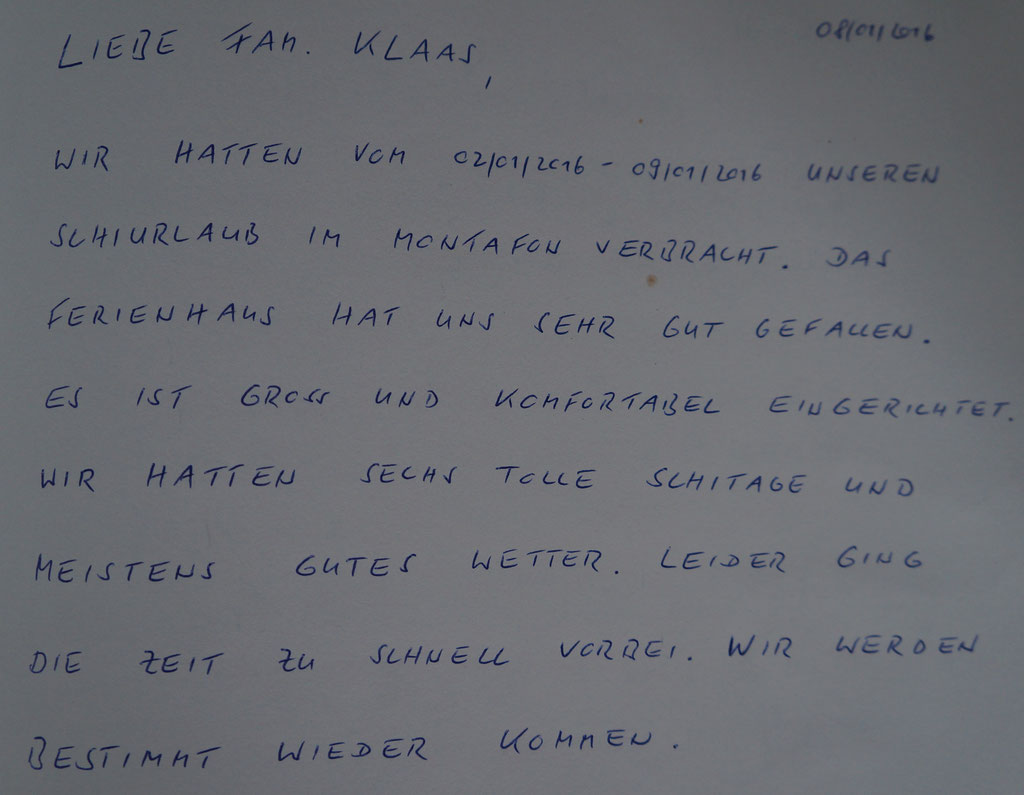 08/01/2016
LIEBE FAM. KLAAS,
WIR HATTEN VOM 02/01/2016 - 09/01/2016 UNSEREN
SCHIURLAUB IM MONTAFON VERBRACHT. DAS
FERIENHAUS HAT UNS SEHR GUT GEFALLEN.
ES IST GROSS UND KOMFORTABEL EINGERICHTET.
WIR HATTEN SECHS TOLLE SCHITAGE UND
MEISTENS GUTES WETTER. LEIDER GING
DIE ZEIT ZU SCHNELL VORBEI. WIR WERDEN
BESTIMMT WIEDER KOMMEN.